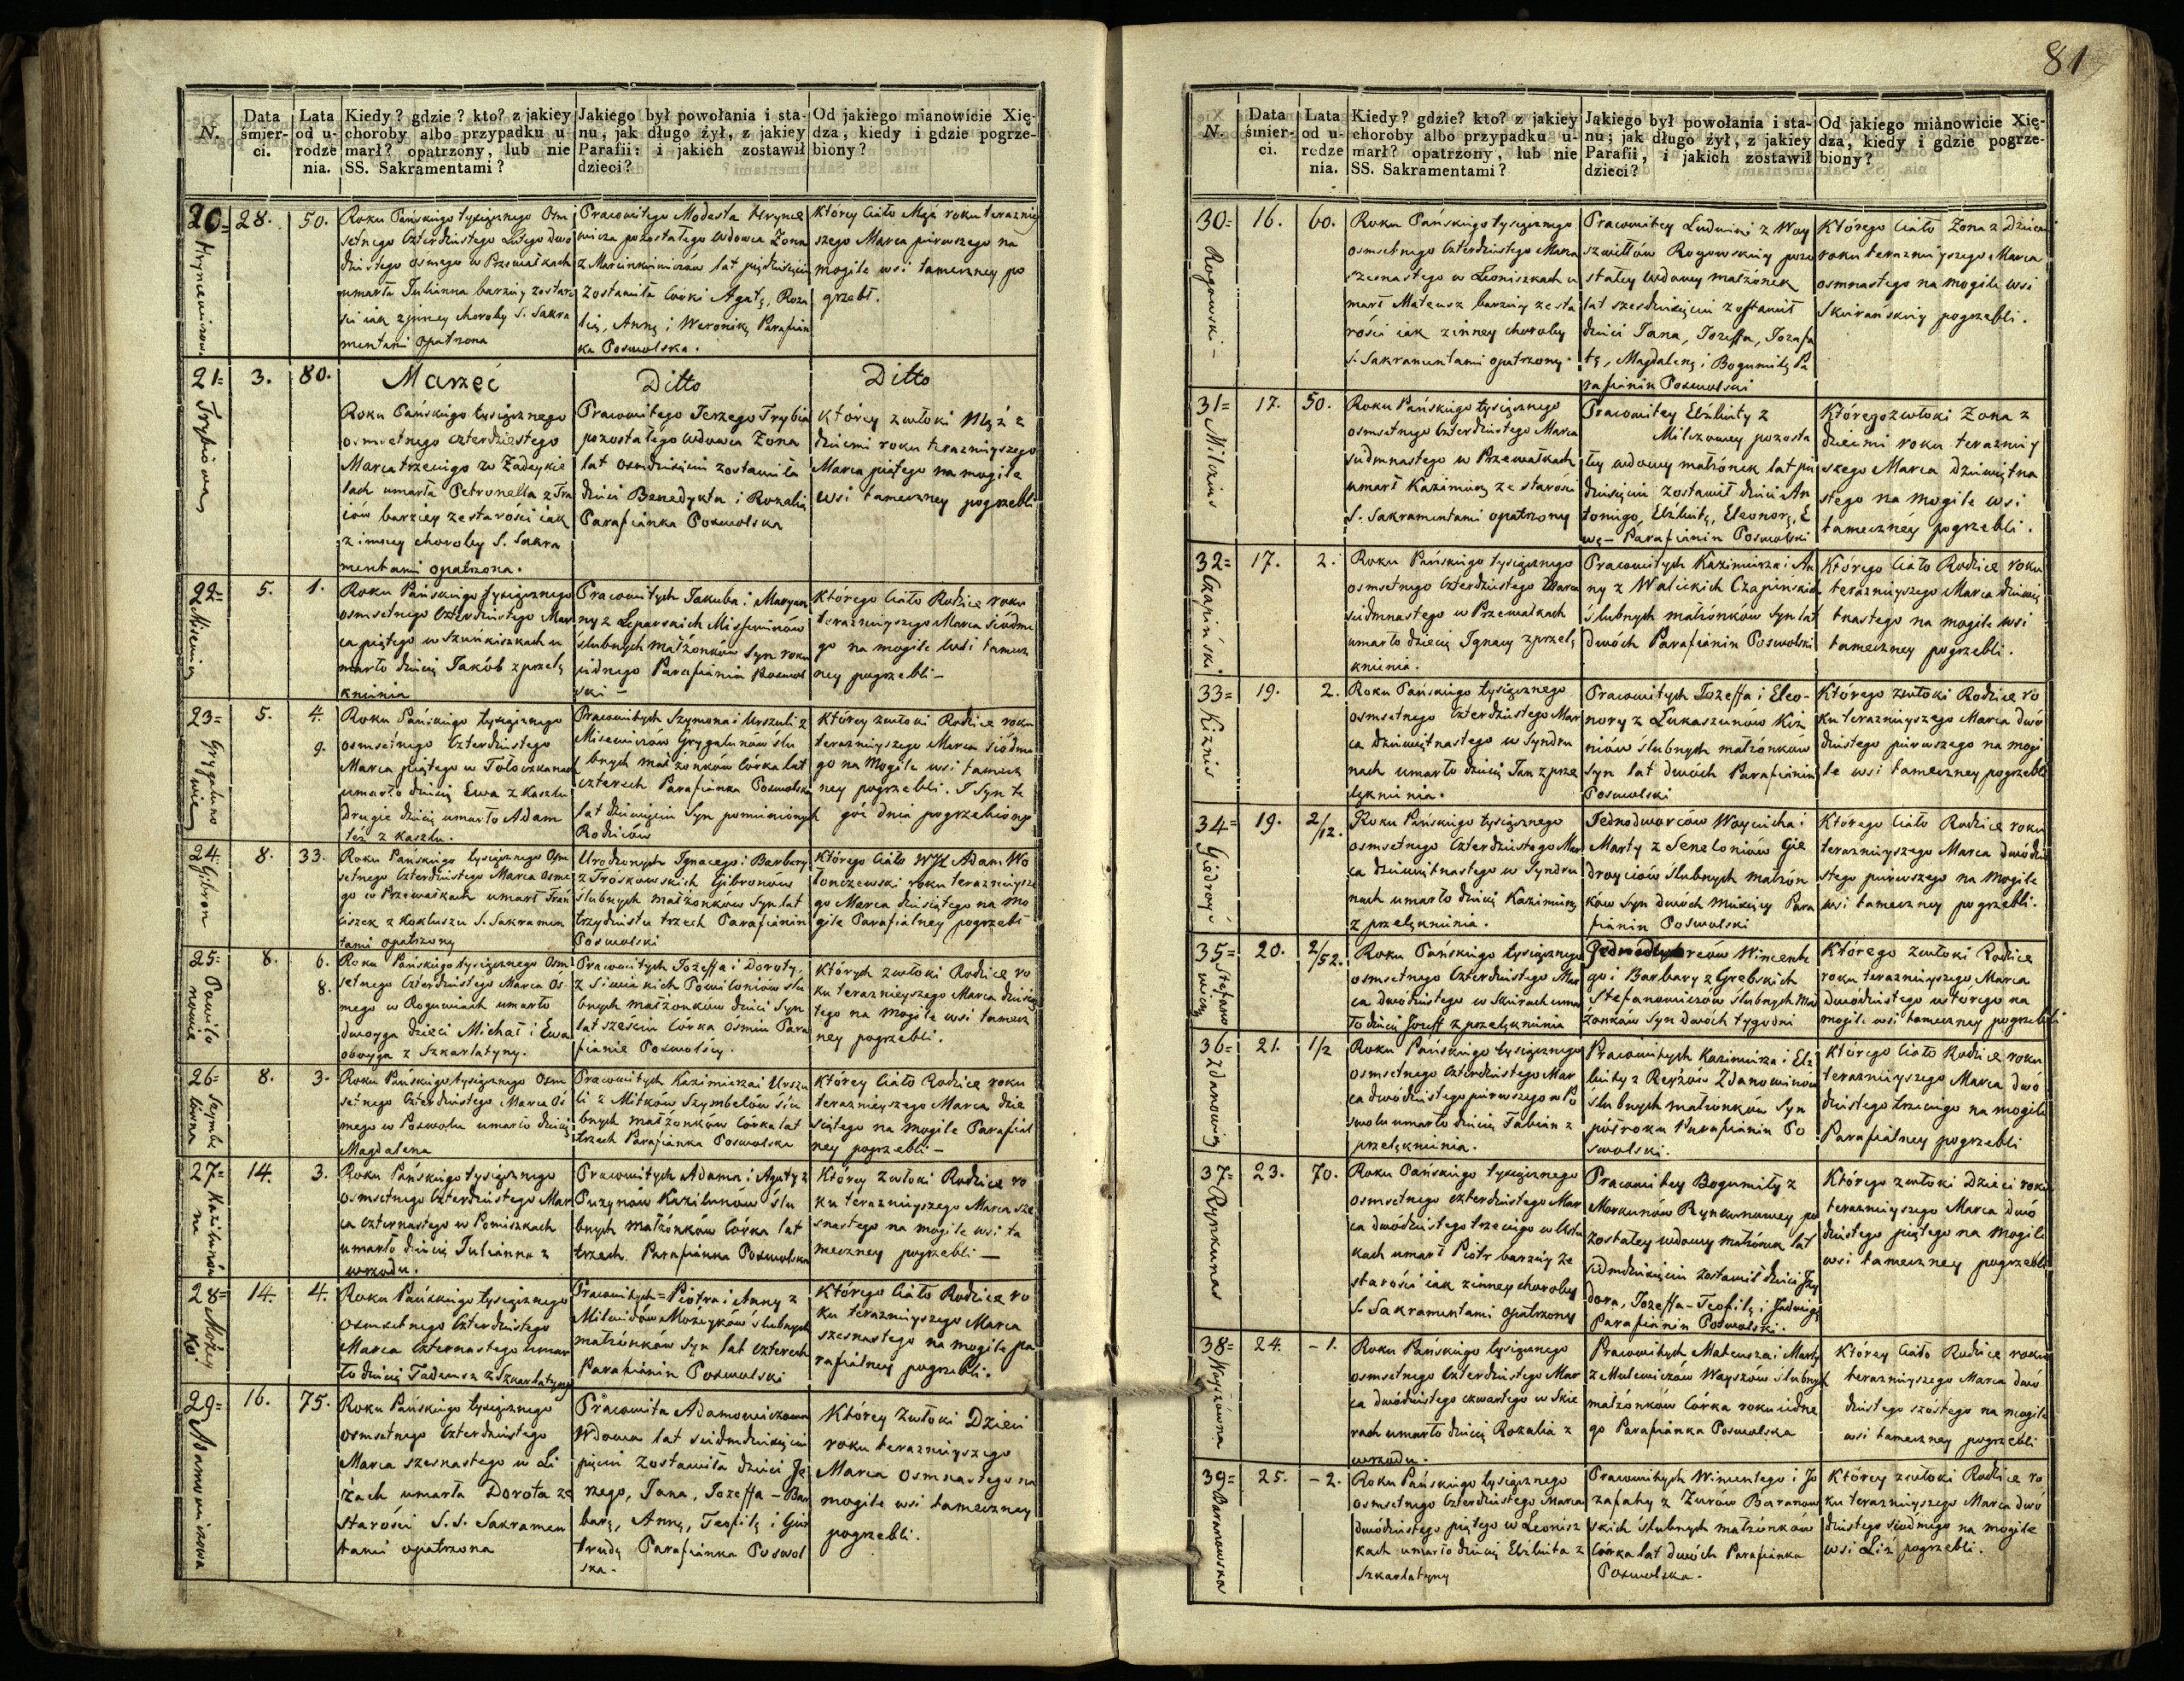 81
N.
Data śmier- ci.
Lata od u- rodze nia.
Kiedy? gdzie? kto? z jakiey
choroby albo przypadku u-
marł? opatrzony, lub nie
SS. Sakramentami?
Jakiego był powołania i sta-
nu, jak długo żył, z jakiey
Parafii: i jakich zostawił
dzieci?
Od jakiego mianowicie Xię-
dza, kiedy i gdzie pogrze-
biony?
20= 28. 50.
Roku Pańskiego tysiącznego Osm
setnego Czterdziestego Lutego dwo
dziestego osmego w Przewałkach
umarła Julianna barziey z staro
ści iak z inney choroby S. Sakra
mentami opatrzona
Pracowitego Modesta Hrynce
wicza pozostałego wdowca Żona
z Marcinkiewiczów lat pięćdziesiąt
zostawiła Córki Agatę, Roza
lię, Annę i Weronikę Parafian
ka Poswolska.
Którey Ciało Mąż roku teraźniey
szego Marca pierwszego na
mogile wsi tameczney po
grzebł.
21= Trybiowa
3. 80.
Marzec
Roku Pańskiego tysiącznego
osmsetnego czterdziestego
Marca trzeciego w Zadeykie
lach umarła Petronella z
barziey ze starości iak
z inney choroby S. Sakra
mentami opatrzona.
Ditto
Pracowitego Jerzego Trybia
pozostałego wdowca Żona
lat osmdziesiąt zostawiła
dzieci Benedykta i Rozalią
Parafianka Poswolska
Ditto
Którey zwłoki Mąż z
dziećmi roku teraźnieyszego
Marca piątego na mogile
wsi tameczney pogrzebli
22= Misiewicz
5. 1.
Roku Pańskiego tysiącznego
osmsetnego Czterdziestego Mar
ca piątego w Szunkiszkach u
marło dziecię Jakób z przelę
knienia
Pracowitych Jakuba i Maryan
ny z Leparskich Missiewiczów
ślubnych małżonków Syn roku
iednego Parafianin Poswol
ski -
Którego Ciało Rodzice roku
teraźnieyszego Marca siódme
go na mogile wsi tamecz
ney pogrzebli -
23= 5. 4. 9.
Roku Pańskiego tysiącznego
osmsetnego Czterdziestego
Marca piątego w Tołoczkanach
umarło dziecię Ewa z kaszlu
drugie dziecię umarło Adam
też z kaszlu.
Pracowitych Szymona i Urszuli z
Misiewiczów Grygalunów ślu
bnych małżonków Córka lat
czterech Parafianka Poswolska
lat dziewięciu Syn pomienionych
Rodziców
Którey zwłoki Rodzice roku
teraźnieyszego Marca siódme
go na Mogile wsi tamecz
ney pogrzebli. I Syn te
goż dnia pogrzebiony
24= Gibron
8. 33.
Roku Pańskiego tysiącznego Osm
setnego Czterdziestego Marca Osme
go w Przewałkach umarł Fran
ciszek z Kokluszu S. Sakramen
tami opatrzony
Urodzonych Ignacego i Barbary
z Troskowskich Gibronów
ślubnych małżonków Syn lat
trzydziestu trzech Parafianin
Poswolski
Którego Ciało WJX Adam Wo
łonczewski roku teraźnieysze
go Marca dziesiątego na mo
gile Parafialney pogrzebł
25= Powiło nowie
8. 6. 8.
Roku Pańskiego tysiącznego Osm
setnego Czterdziestego Marca Os
mego w Roguwiach umarło
dwoyga dzieci Michał i Ewa
oboyga z Szkarlatyny.
Pracowitych Jozeffa i Doroty,
z Siwickich Powiłoniów ślu
bnych małżonków dzieci Syn
lat sześciu Córka ośmiu Para
fianie Poswolscy.
Których zwłoki Rodzice ro
ku teraźnieyszego Marca dziesią
tego na mogile wsi tamecz
ney pogrzebli.
26= Szymbe lówna
8. 3.
Roku Pańskiego tysiącznego Osm
setnego Czterdziestego Marca Os
mego w Poswolu umarło dziecię
Magdalena
Pracowitych Kazimierza i Urszu
li z Mitków Szymbelów ślu
bnych małżonków Córka lat
trzech Parafianka Poswolska
Którey Ciało Rodzice roku
teraźnieyszego Marca dzie
siątego na mogile Parafial
ney pogrzebli -
27= Kazilunów na
14. 3.
Roku Pańskiego tysiącznego
osmsetnego Czterdziestego Mar
ca czternastego w Pomiszkach
umarło dziecię Julianna z
wrzodu.
Pracowitych Adama i Agaty z
Puzynów Kazilunów ślu
bnych małżonków Córka lat
trzech Parafianka Poswolska
Którey zwłoki Rodzice ro
ku teraźnieyszego Marca sze
snastego na mogile wsi ta
meczney pogrzebli -
28= Mozey ko
14. 4.
Roku Pańskiego tysiącznego
osmsetnego Czterdziestego
Marca Czternastego umar
ło dziecię Tadeusz z Szkarlatyny
Pracowitych Piotra i Anny z
Milwidów Mozeyków ślubnych
małżonków Syn lat czterech
Parafianin Poswolski
Którego Ciało Rodzice ro
ku teraźnieyszego Marca
szesnastego na mogile pa
rafialney pogrzebli.
29= Adamowiczowa
16. 75.
Roku Pańskiego tysiącznego
osmsetnego Czterdziestego
Marca szesnastego w Li
żach umarła Dorota ze
starości S.S. Sakramen
tami opatrzona
Pracowita Adamowiczowa
Wdowa lat siedmdziesiąt
pięciu zostawiła dzieci Je
rzego, Jana, Jozeffa - Bar
barę, Annę, Teofilę i Gier
trudę Parafianka Poswol
ska.
Którey zwłoki Dzieci
roku teraźnieyszego
Marca osmnastego na
mogile wsi tameczney
pogrzebli.
N.
Data śmier- ci.
Lata od u- rodze nia.
Kiedy? gdzie? kto? z jakiey
choroby albo przypadku u-
marł? opatrzony, lub nie
SS. Sakramentami?
Jakiego był powołania i sta-
nu; jak długo żył, z jakiey
Parafii, i jakich zostawił
dzieci?
Od jakiego mianowicie Xię-
dza, kiedy i gdzie pogrze-
biony?
30= Rogowski -
16. 60.
Roku Pańskiego tysiącznego
osmsetnego Czterdziestego Marca
szesnastego w Leoniszkach u
marł Mateusz barziey ze sta
rości iak z inney choroby
S. Sakramentami opatrzony.
Pracowitey Ludwiki z Woy
szwiłłów Rogowskiey pozo
stałey wdowy małżonek
lat sześdziesięciu zostawił
dzieci Jana, Jozeffa, Jozafa
tę, Magdalenę i Bogumiłę Pa
rafianin Poswolski
Którego Ciało Żona z Dziećmi
roku teraźnieyszego Marca
osmnastego na mogile wsi
Skirańskiey pogrzebli.
31= Milczius
17. 50.
Roku Pańskiego tysiącznego
osmsetnego Czterdziestego Marca
siedmnastego w Przewałkach
umarł Kazimierz ze starości
S. Sakramentami opatrzony
Pracowitey Elżbiety z
Milczowey pozosta
łey wdowy małżonek lat pię
dziesięciu zostawił dzieci An
toniego, Elżbietę, Eleonorę, E
wę - Parafianin Poswolski
Którego zwłoki Żona z
dziećmi roku teraźniey
szego Marca dziewiętna
stego na mogile wsi
tameczney pogrzebli.
32= Czapiński
17. 2.
Roku Pańskiego tysiącznego
osmsetnego Czterdziestego Marca
siedmnastego w Przewałkach
umarło dziecię Ignacy z przelę
knienia.
Pracowitych Kazimierza i An
ny z Walickich Czapińskich
ślubnych małżonków Syn lat
dwóch Parafianin Poswolski
Którego Ciało Rodzice roku
teraźnieyszego Marca dziewię
tnastego na mogile wsi
tameczney pogrzebli.
33= Kiznis
19. 2.
Roku Pańskiego tysiącznego
osmsetnego Czterdziestego Mar
ca dziewiętnastego w Syndru
nach umarło dziecię Jan z prze
lęknienia.
Pracowitych Jozeffa i Eleo-
nory z Łukaszunów Kiz
niów ślubnych małżonków
Syn lat dwóch Parafianin
Poswolski
Którego zwłoki Rodzice ro
ku teraźnieyszego Marca dwó
dziestego pierwszego na mogi
le wsi tameczney pogrzebli
34= Giedroyć
19. 2/12.
Roku Pańskiego tysiącznego
osmsetnego Czterdziestego Mar
ca dziewiętnastego w Syndru
nach umarło dziecię Kazimierz
z przelęknienia.
Jednodworców Woyciecha i
Marty z Seneloniów Gie
droyciów ślubnych małżon
ków Syn dwóch Miesięcy Para
fianin Poswolski
Którego Ciało Rodzice roku
teraźnieyszego Marca dwódzie
stego pierwszego na mogile
wsi tameczney pogrzebli.
35= Stefano wicz
20. 2/52.
Roku Pańskiego tysiącznego
osmsetnego Czterdziestego Mar
ca dwódziestego w Skirach umar
ło dziecię Jozeff z przelęknienia
Jednodworców Wincente
go i Barbary z Grebskich
Stefanowiczów ślubnych Mał
żonków Syn dwóch tygodni
Którego zwłoki Rodzice
roku teraźnieyszego Marca
dwódziestego wtorego na
mogile wsi tameczney pogrzebli
36= Zdanowicz
21. 1/2
Roku Pańskiego tysiącznego
osmsetnego Czterdziestego Mar
ca dwódziestego pierwszego w Po
swolu umarło dziecię Fabian z
przelęknienia.
Pracowitych Kazimierza i Elż
biety z Reyzów Zdanowiczów
ślubnych małżonków Syn
półroku Parafianin Po
swolski.
Którego Ciało Rodzice roku
teraźnieyszego Marca dwó
dziestego trzeciego na mogile
Parafialney pogrzebli
37= Rynkunas
23. 70.
Roku Pańskiego tysiącznego
osmsetnego czterdziestego Mar
ca dwódziestego trzeciego w
kach umarł Piotr barziey ze
starości iak z inney choroby
S. Sakramentami opatrzony
Pracowitey Bogumiły z
Morkunów Rynkunowey po
zostałey wdowy małżonek lat
siedmdziesięciu zostawił dzieci Izy
dora, Jozeffa - Teofilę i Jadwigę
Parafianin Poswolski.
Którego zwłoki Dzieci roku
teraźnieyszego Marca dwó
dziestego piątego na Mogile
wsi tameczney pogrzebli
38= Woyszówna
24. - 1.
Roku Pańskiego tysiącznego
osmsetnego Czterdziestego Mar
ca dwódziestego czwartego w Skie
rach umarło dziecię Rozalia z
wrzodu.
Pracowitych Mateusza i Marty
z Mulewiczów Woyszów ślubnych
małżonków Córka roku iedne
go Parafianka Poswolska
Którey Ciało Rodzice roku
teraźnieyszego Marca dwó
dziestego szóstego na mogile
wsi tameczney pogrzebli
39= Baranowska
25. - 2.
Roku Pańskiego tysiącznego
osmsetnego Czterdziestego Marca
dwódziestego piątego w Leonisz
kach umarło dziecię Elżbieta z
Szkarlatyny
Pracowitych Wincentego i Jo
zafaty z Żurów Baranow
skich ślubnych małżonków
Córka lat dwóch Parafianka
Poswolska.
Którey zwłoki Rodzice ro
ku teraźnieyszego Marca dwó
dziestego siódmego na mogile
wsi Liż pogrzebli.